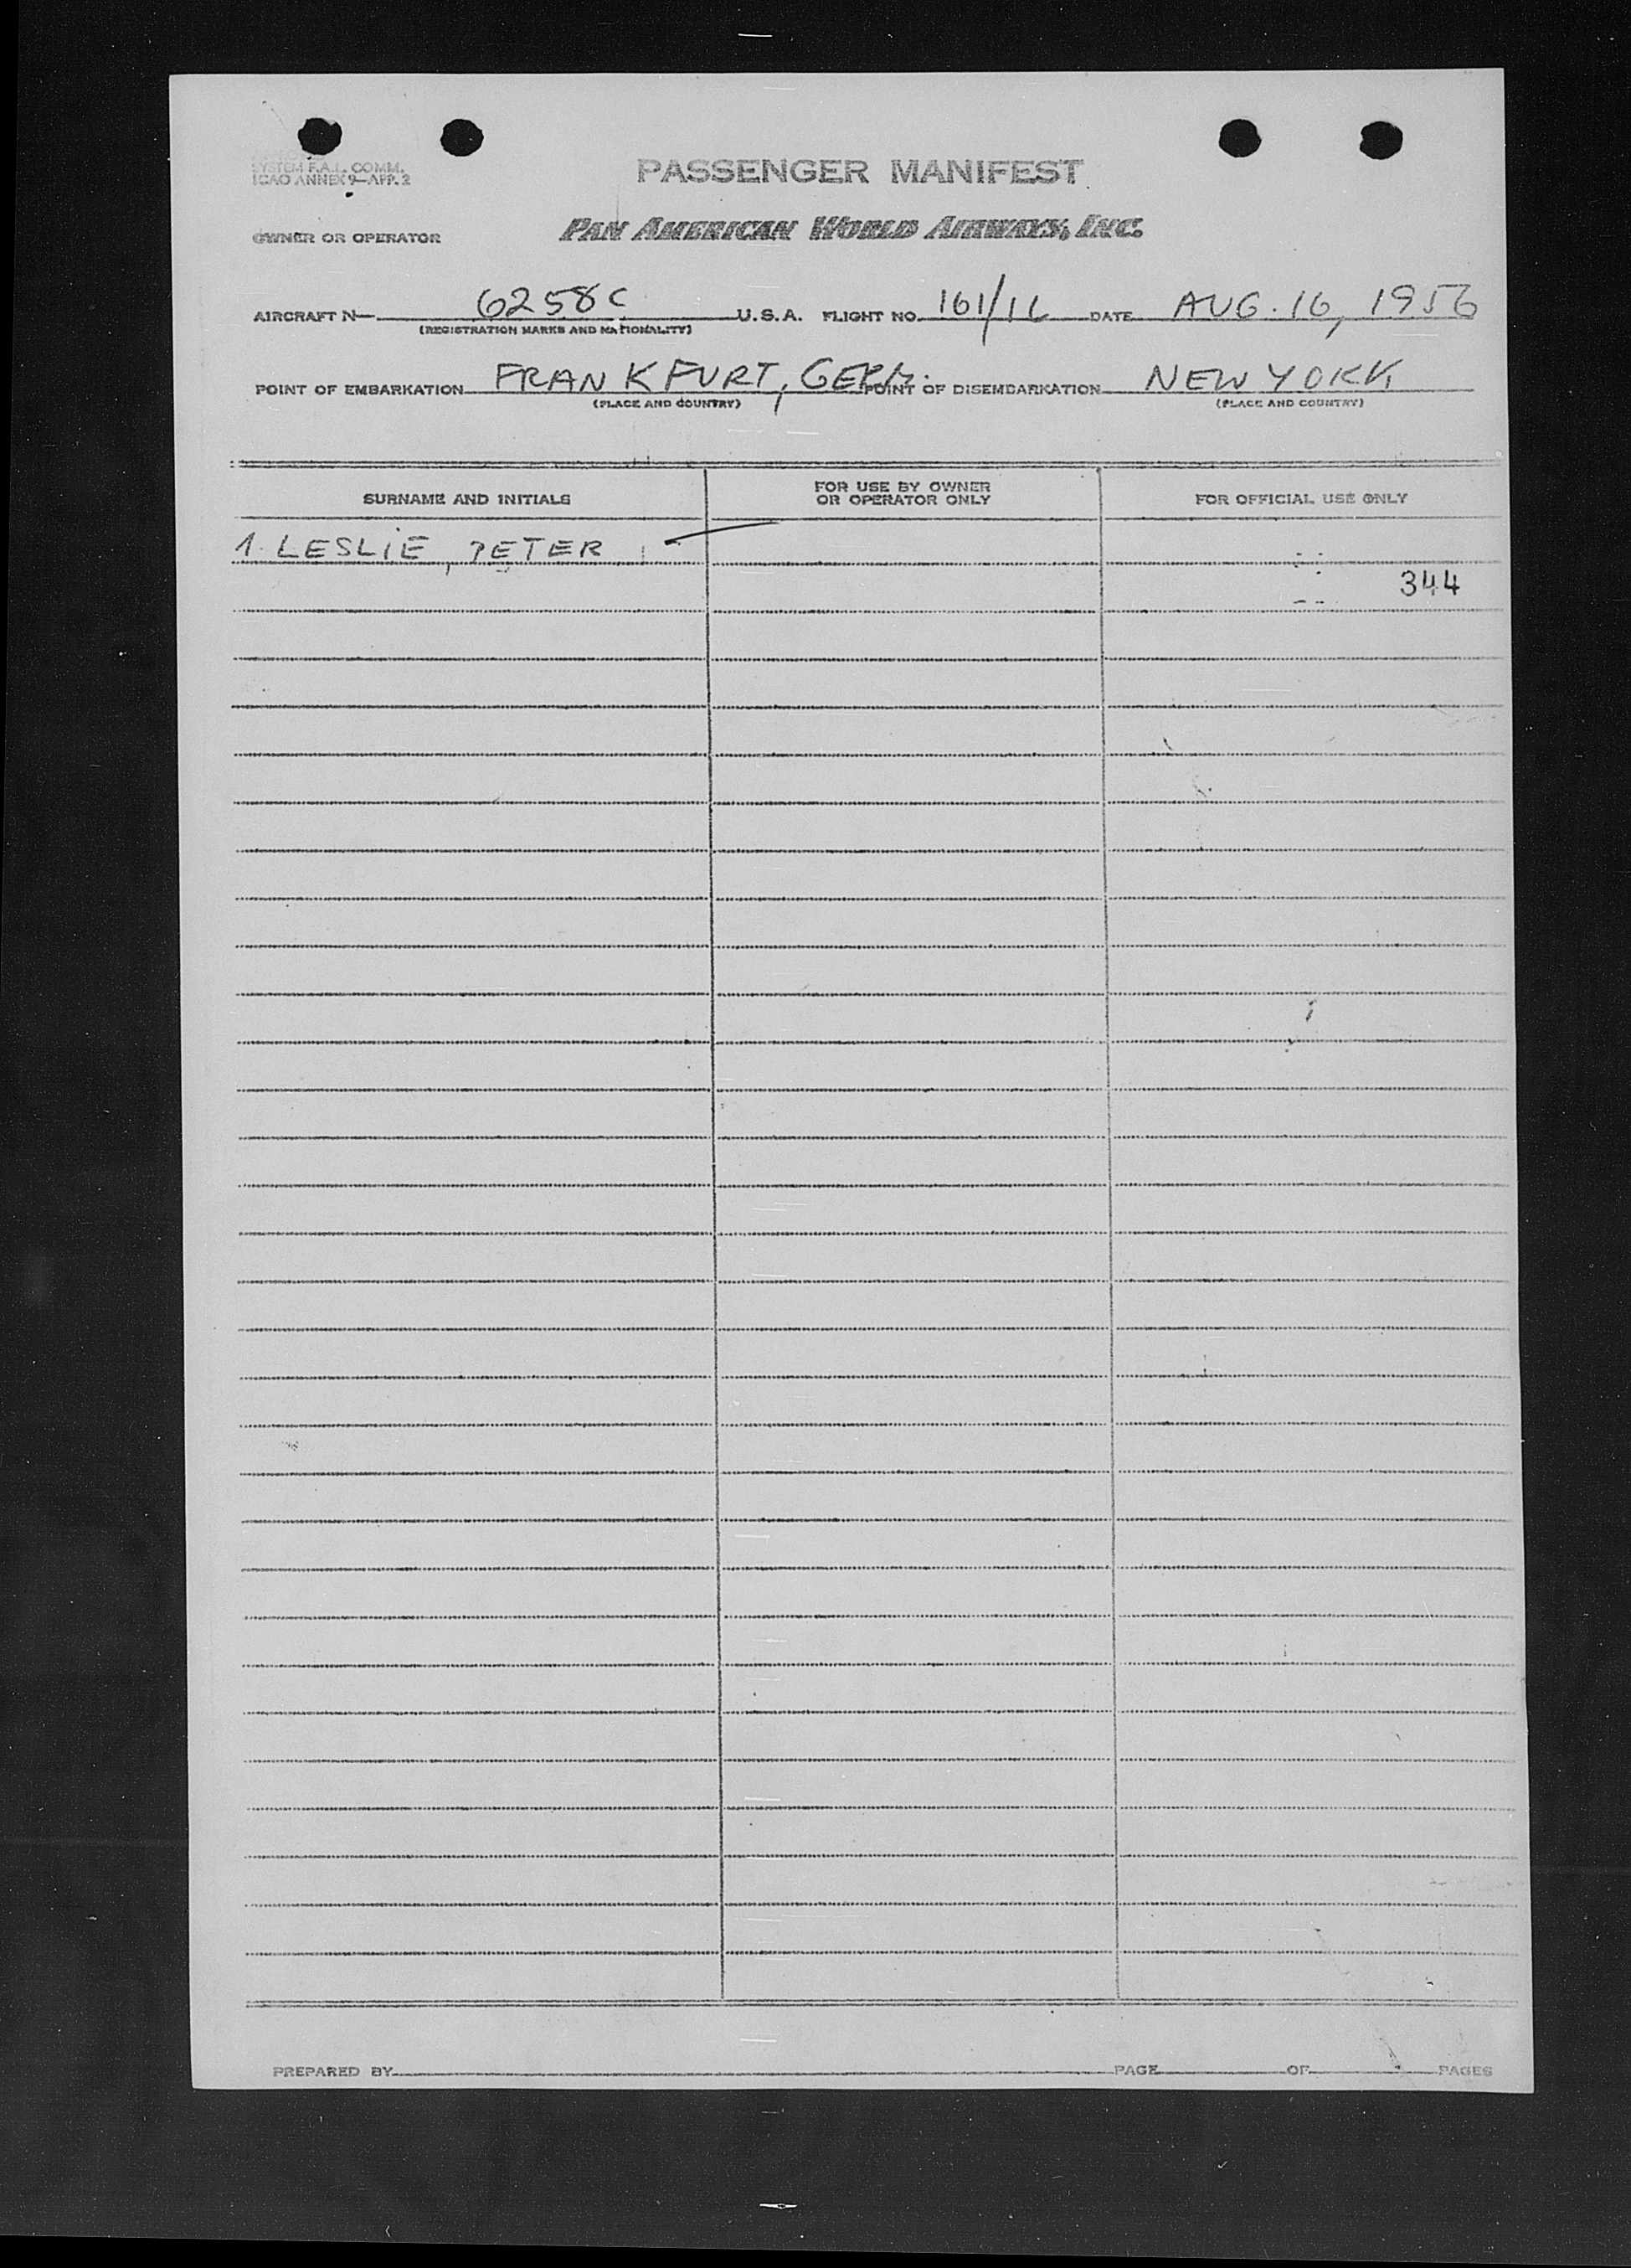 PASSENGER MANIFEST
SYSTEM F.A.L. COMM.
ICAO ANNEX 9—APP. 2
OWNER OR OPERATOR PAN AMERICAN WORLD AIRWAYS, INC.
AIRCRAFT N— 6258C U.S.A. FLIGHT NO. 161/16 DATE AUG. 16, 1956
(REGISTRATION MARKS AND NATIONALITY)
POINT OF EMBARKATION FRANKFURT, GERM. POINT OF DISEMBARKATION NEW YORK
(PLACE AND COUNTRY) (PLACE AND COUNTRY)
SURNAME AND INITIALS FOR USE BY OWNER OR OPERATOR ONLY FOR OFFICIAL USE ONLY
1. LESLIE, PETER
344
PREPARED BY PAGE OF PAGES